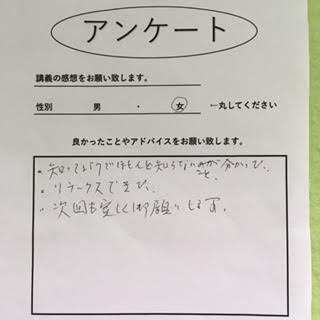 アンケート
講義の感想をお願い致します。
性別 男 ・ 女 ←丸してください
良かったことやアドバイスをお願い致します。
・知ってるようでほとんど知らないことが分かった、
・リラークスできた、
・次回も宜しく御願いします。